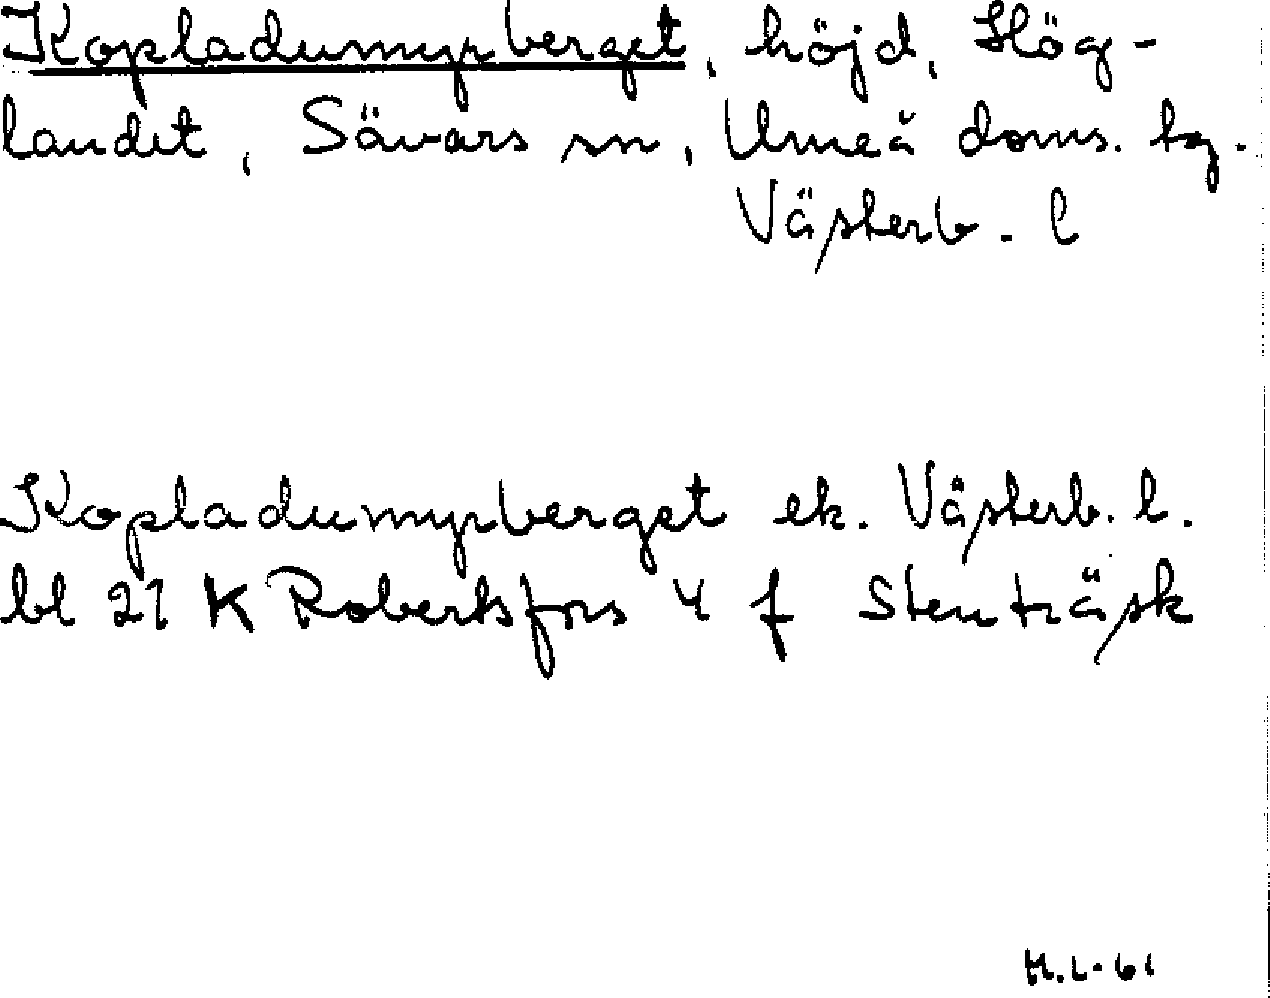 Kopladumyrberget, höjd, Hög-
landet, Sävars sn, Umeå doms. tg.
Västerb. l
Kopladumyrberget ek. Västerb. l.
bl 21 K Robertsfors 4 f Stenträsk
H.L. 61